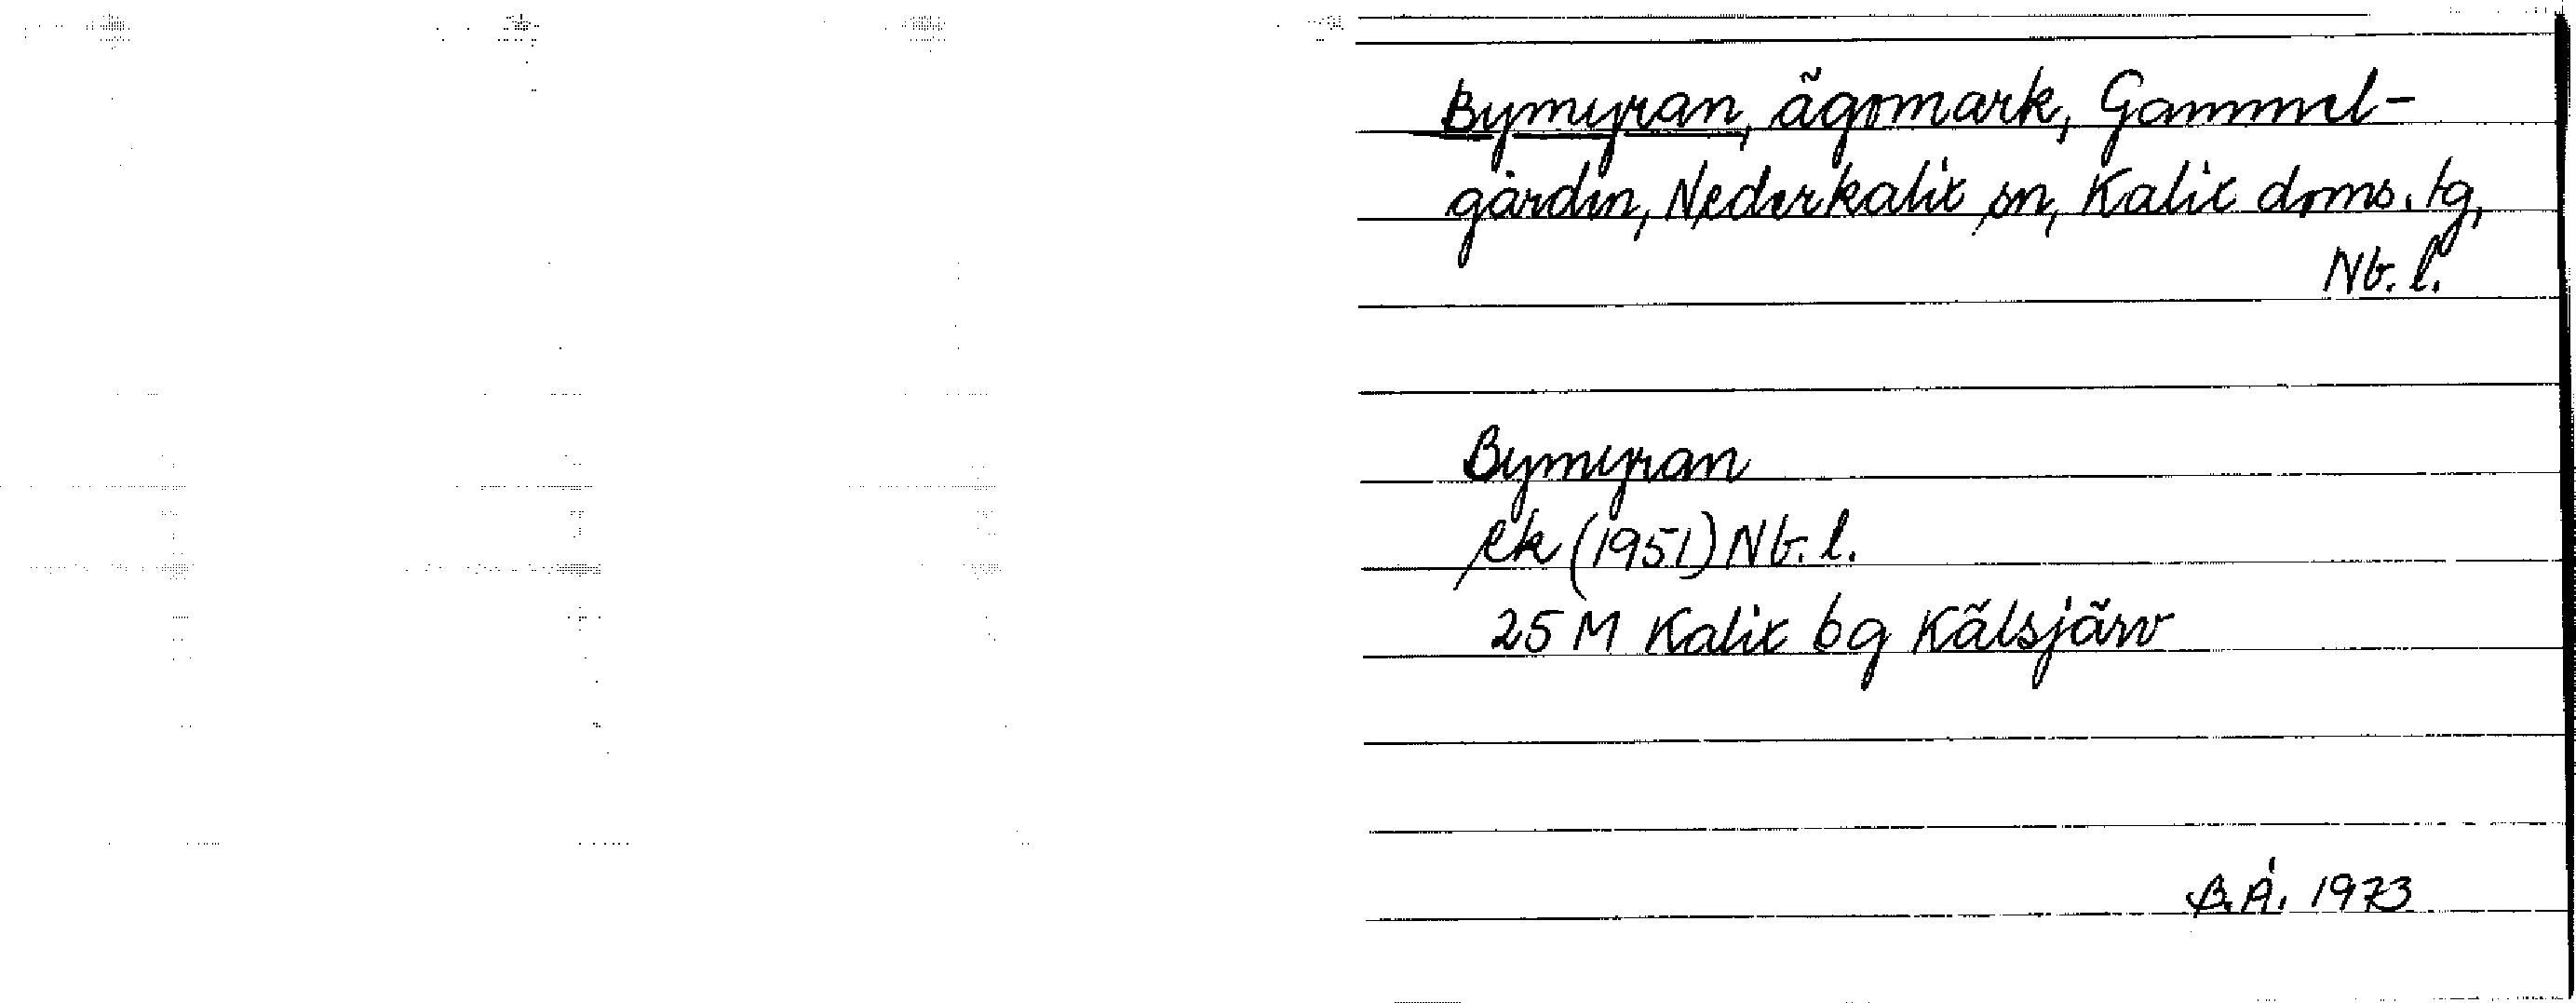 Bymyran, ägomark, Gammel-
gården, Nederkalix sn, Kalix doms. tg,
Nb. l.
Bymyran
ek (1951) Nb. l.
25 M Kalix bg Kälsjärv
B.Å. 1973